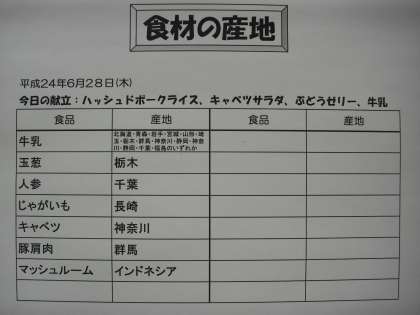 食材の産地
平成24年6月28日(木)
今日の献立：ハッシュドポークライス、キャベツサラダ、ぶどうゼリー、牛乳
食品 産地 食品 産地
牛乳 北海道・青森・岩手・宮城・山形・埼
玉・栃木・群馬・神奈川・静岡・神奈
川・静岡・千葉・福島のいずれか
玉葱 栃木
人参 千葉
じゃがいも 長崎
キャベツ 神奈川
豚肩肉 群馬
マッシュルーム インドネシア